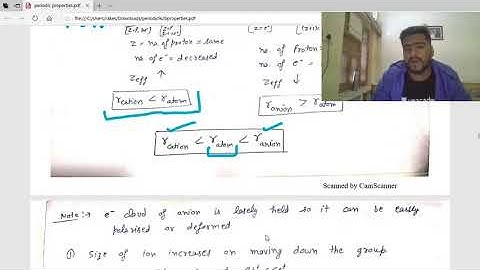 periodic properties.pdf
C:/Users/rakes/Downloads/periodic%20properties.pdf
Z = no. of proton = same
no. of e⁻ = decreased
Zeff ↑
r cation < r atom
no. of Proton =
no. of e⁻ =
Zeff ↓
r anion > r atom
r cation < r atom < r anion
Scanned by CamScanner
Note:→ e⁻ cloud of anion is losely held so it can be easily
polarised or deformed
① Size of ion increases on moving down the group